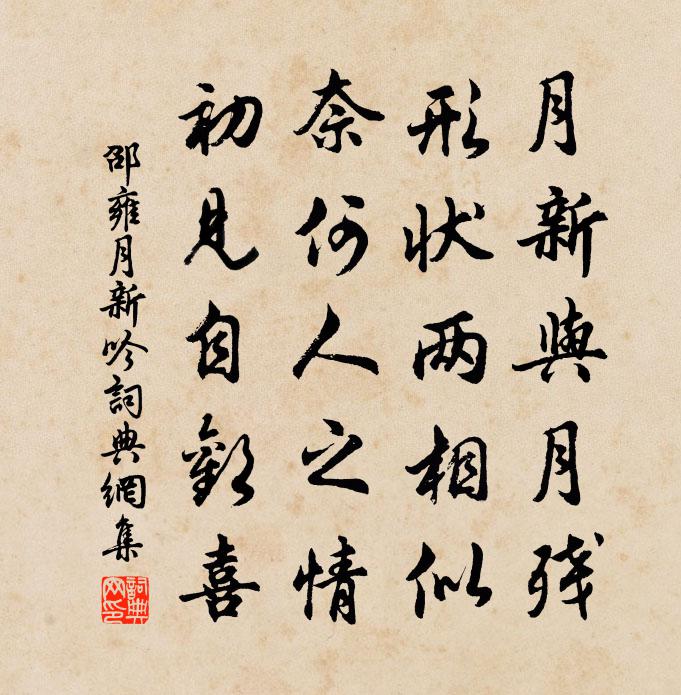 月新與月残
形状两相似
奈何人之情
初見自歡喜
邵雍月新吟詞典網集
詞典網印